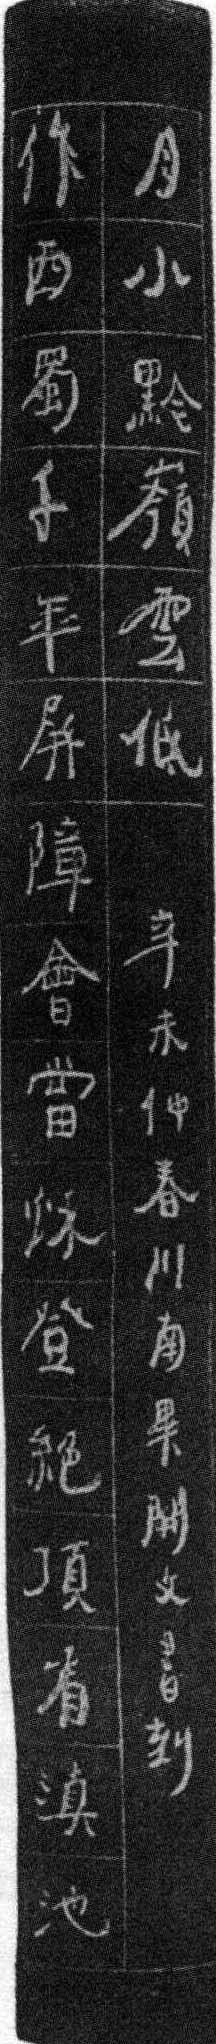 作西蜀千年屏障會當秋登絕頂看滇池
月小黔嶺雲低
辛未仲春川南畢開文書刻